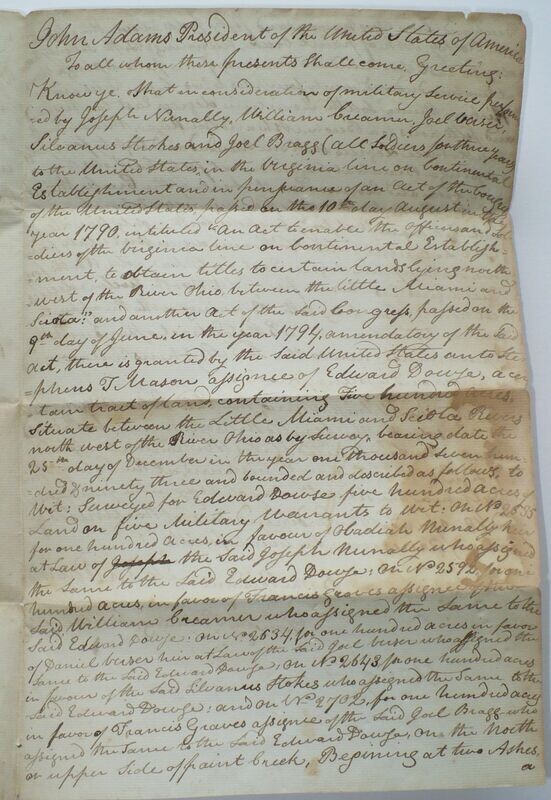 John Adams President of the United States of America
To all whom these presents Shall come, Greeting:
Know ye, that in consideration of military Service perform
=ed by Joseph Nunally, William Creamer, Joel
Silvanus Strokes and Joel Bragg (all Soldiers for three years
to the United States, in the Virginia line on Continental
Establishment and in pursuance of an Act of the Congress
of the United States, passed on the 10th day August in the
year 1790, intituled "An Act to enable the Officers and Sol
=diers of the Virginia line on Continental Establish
=ment, to obtain titles to certain lands lying north
west of the River Ohio between the little Miami and
Sciota;" and another Act of the Said Congress, passed on the
9th day of June, in the year 1794, amendatory of the Said
Act, there is granted by the Said United States unto Ste
=phens T. Mason assignee of Edward Dowse, a cer
=tain tract of land, containing Five hundred acres,
Situate between the Little Miami and Sciota Rivers
north west of the River Ohio as by Survey, bearing date the
25th day of December in the year one thousand Seven hun
=dred & ninety three and bounded and described as follows, to
Wit: Surveyed for Edward Dowse five hundred acres of
Land on five Military Warrants to Wit: on No.
for one hundred Acres, in favour of Obadiah Nunally heir
at Law of Joseph the Said Joseph Nunally who assigned
the Same to the Said Edward Dowse; on No. 2592, for one
hundred acres, in favor of Francis Graves assignee of the
Said William Creamer who assigned the Same to the
Said Edward Dowse: on No. 2634, for one hundred acres in favor
of Daniel heir at Law of the Said Joel who assigned the
Same to the Said Edward Dowse; on No. 2643 for one hundred acres
in favour of the Said Silvanus Stokes who assigned the Same to the
Said Edward Dowse: and on No. 2702, for one hundred acres
in favor of Francis Graves assignee of the Said Joel Bragg who
assigned the Same to the Said Edward Dowse, on the North
or upper Side of paint Creek, Begining at two Ashes,
a